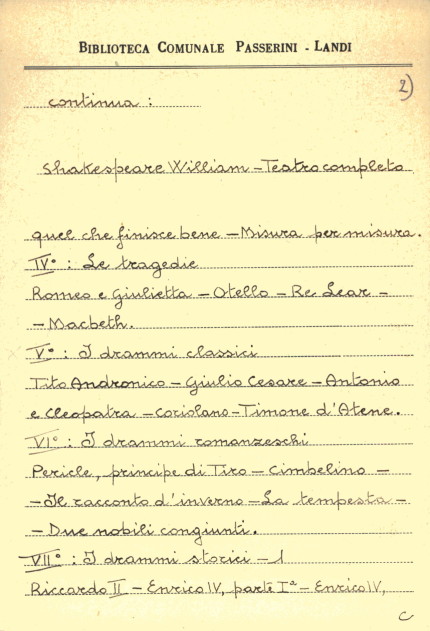 BIBLIOTECA COMUNALE PASSERINI - LANDI
2)
continua :
Shakespeare William - Teatro completo
quel che finisce bene - Misura per misura.
IV° : Le tragedie
Romeo e Giulietta - Otello - Re Lear -
- Macbeth.
V° : I drammi classici
Tito Andronico - Giulio Cesare - Antonio
e Cleopatra - Coriolano - Timone d'Atene.
VI° : I drammi romanzeschi
Pericle, principe di Tiro - Cimbelino -
- Il racconto d'inverno - La tempesta -
- Due nobili congiunti.
VII° : I drammi storici - 1
Riccardo II - Enrico IV, parte Iª - Enrico IV,
C